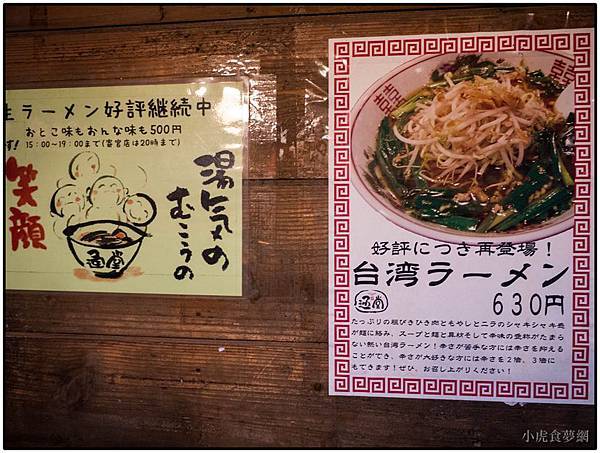 生ラーメン好評継続中
おとこ味もおんな味も500円
す! 15:00~19:00まで(客宮店は20時まで)
湯気の
むこうの
笑顔
通堂
好評につき再登場!
台湾ラーメン
通堂
630円
たっぷりの粗びきひき肉ともやしとニラのシャキシャキ感
が麺に絡み、スープと麺と具材そして辛味の旨味がたまら
ない熱い台湾ラーメン!辛さが苦手な方には辛さを抑える
ことができ、辛さが大好きな方には辛さを2倍、3倍に
もできます!ぜひ、お召し上がりください!
小虎食夢網